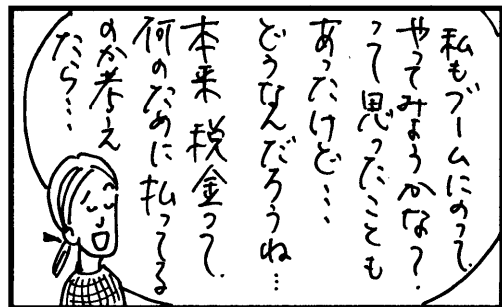 私もブームにのって、
やってみようかな？
って思ったことも
あったけど…
どうなんだろうね…
本来 税金って、
何のために払ってる
のか考え
たら…